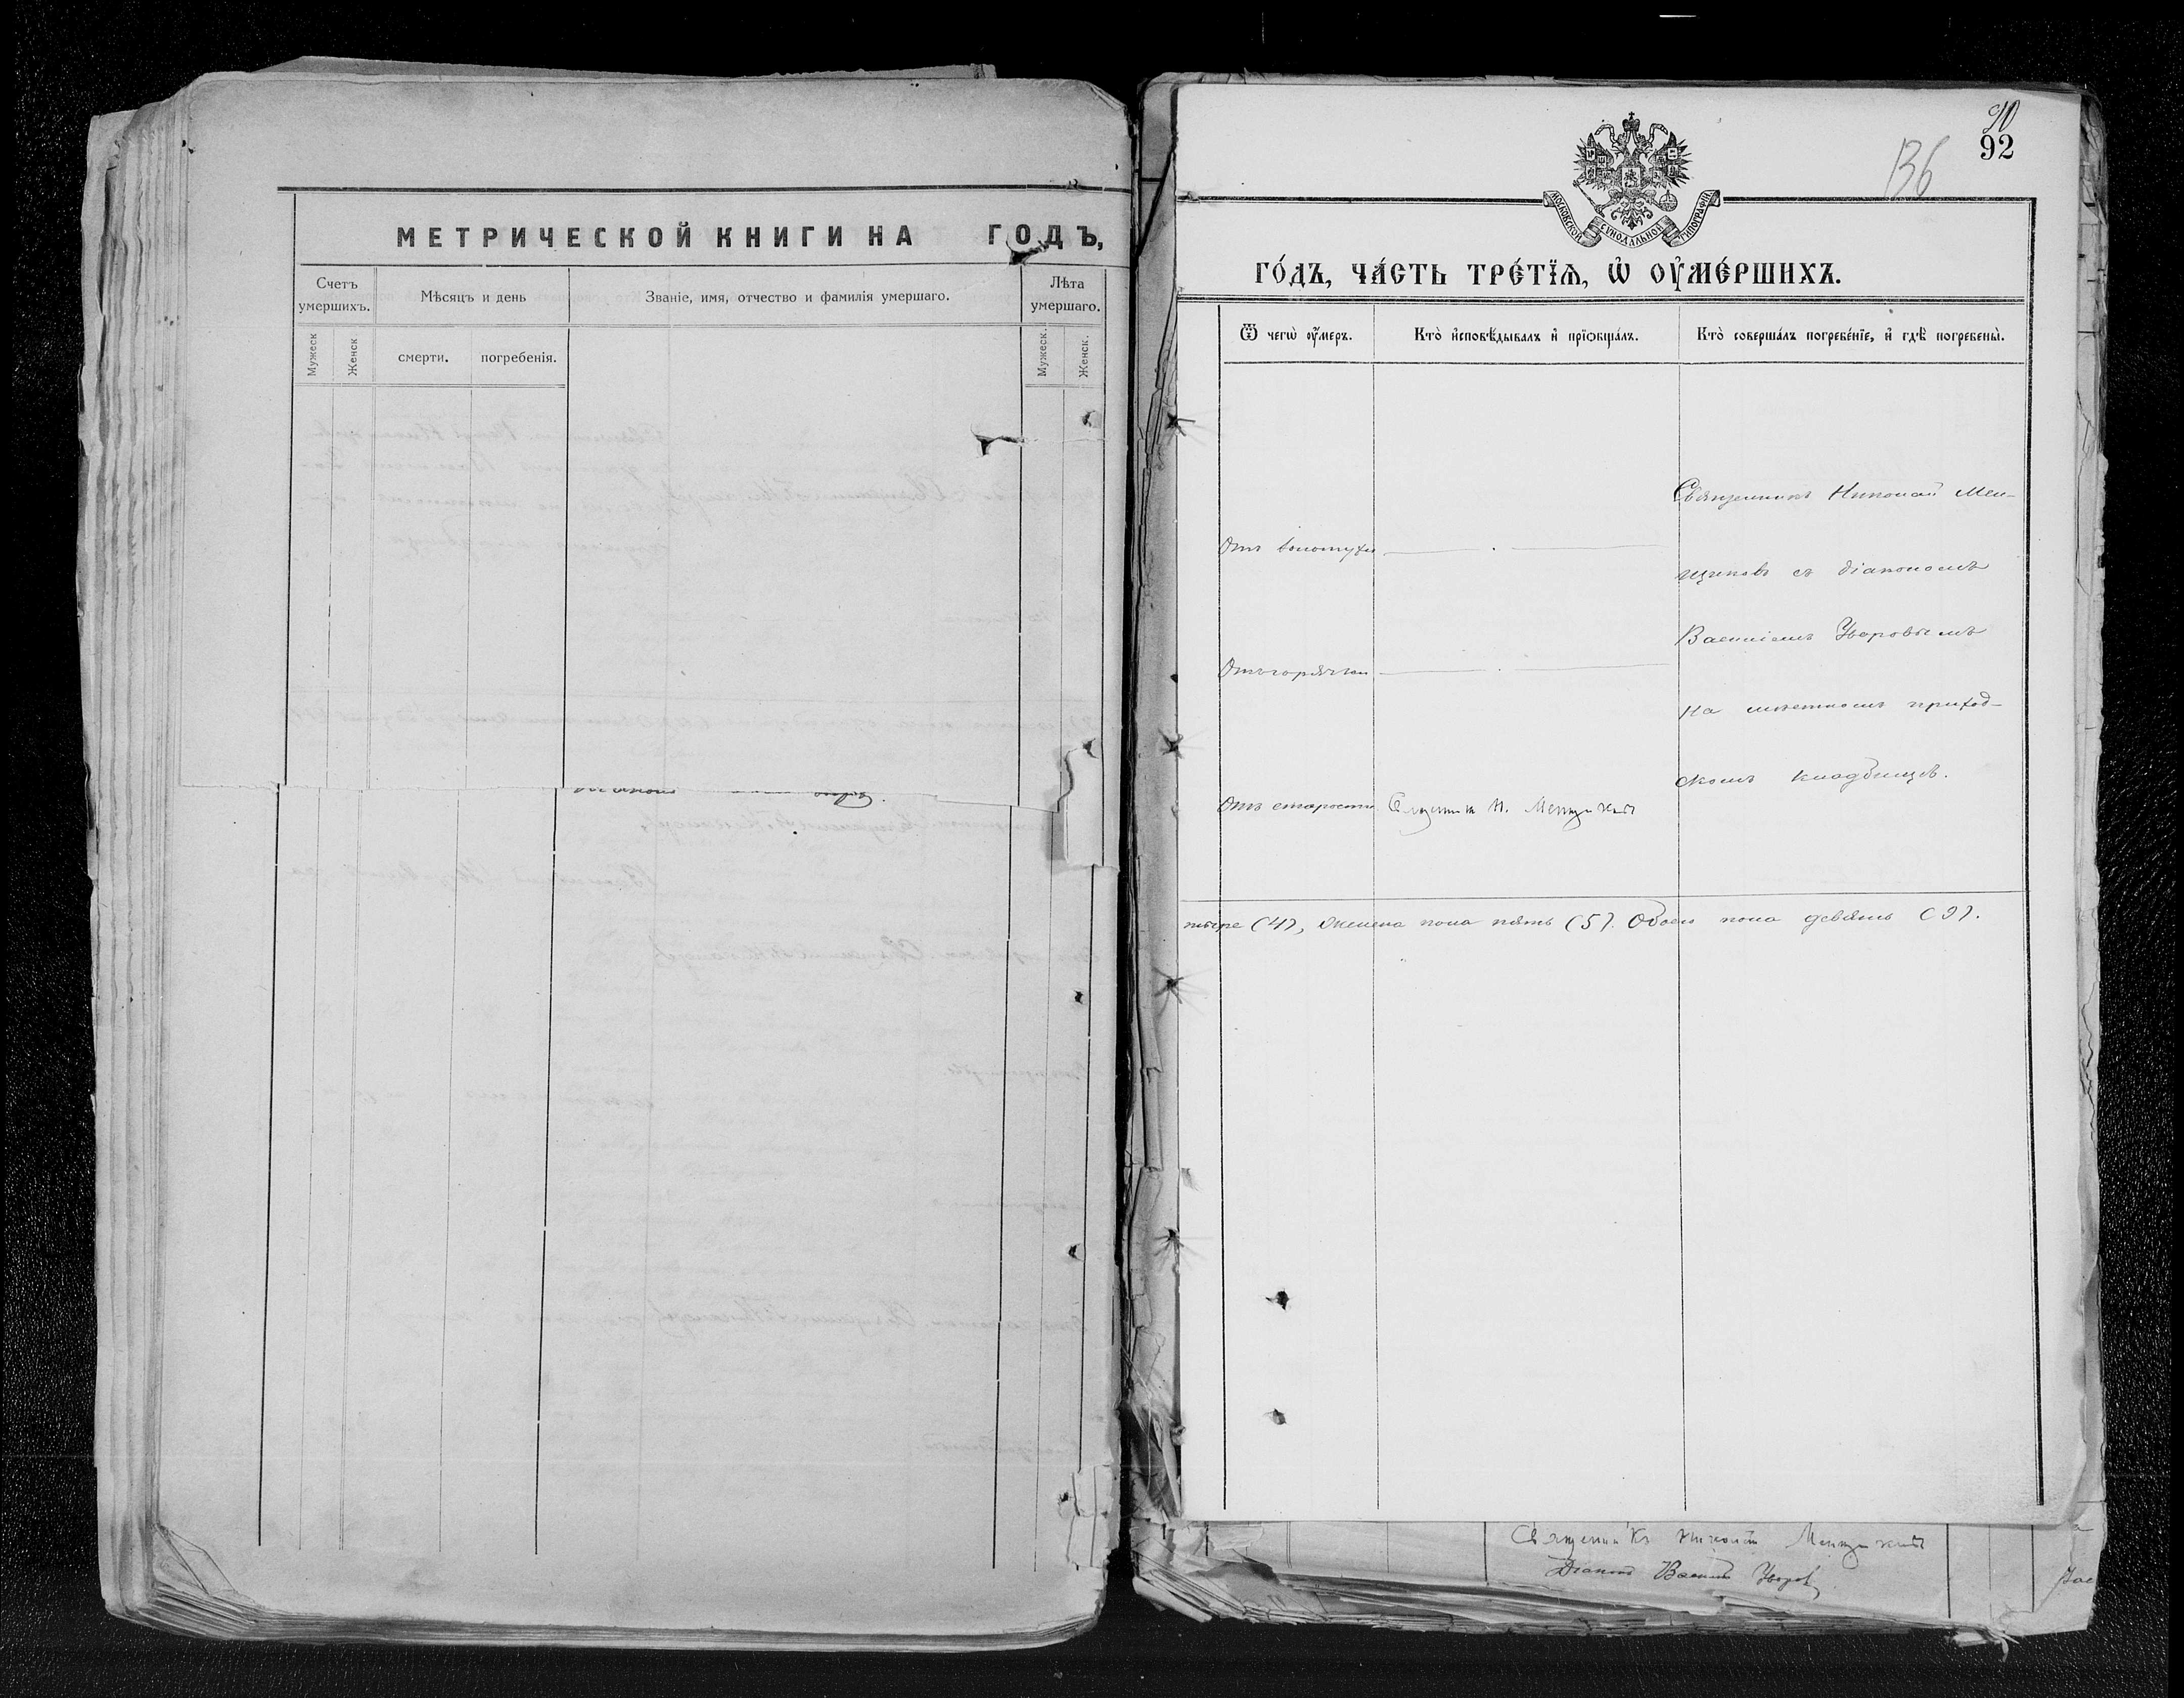 МЕТРИЧЕСКОЙ КНИГИ НА ГОДЪ,
Счетъ умершихъ.
Мѣсяцъ и день
Званіе, имя, отчество и фамилія умершаго.
Лѣта умершаго.
Мужеск
Женск
смерти.
погребенія.
Мужеск.
Женск.
90
92
136
МОСКОВСКОЙ СѴНОДАЛЬНОЙ ТИПОГРАФІИ
ГО́ДЪ, ЧА́СТЬ ТРЕ́ТЇѦ, Ѡ҆ ОУ҆МЕ́РШИХЪ.
Ѿ чегѡ̀ оу҆́меръ.
Кто̀ и҆сповѣ́дывалъ и҆ прїѡбща́лъ.
Кто̀ соверша́лъ погребе́нїе, и҆ гдѣ̀ погребены̀.
Священникъ Николай Мен-
Отъ золотухи
щиковъ съ діакономъ
Василіемъ Уваровымъ
Отъ горячки
на мѣстномъ приход-
скомъ кладбищѣ.
Отъ старости
Священникъ Н. Менщиковъ
тыре (4), женска пола пять (5). Обоего пола девять (9).
Священникъ Николай Менщиковъ
Діаконъ Василій Уваровъ